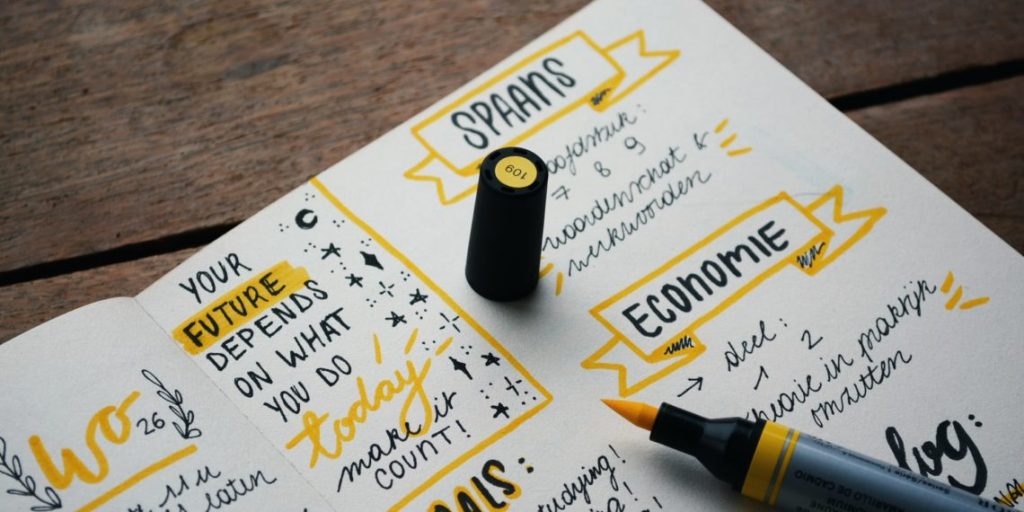 Wo
26
11u
laten
YOUR
FUTURE
DEPENDS
ON WHAT
YOU DO
today
make it
COUNT!
studying!
SPAANS
7 8 9
woordenschat &
werkwoorden
ECONOMIE
→ deel:
1 2
theorie in praktijk
omzetten
109
AMARILLO DE CADMIO